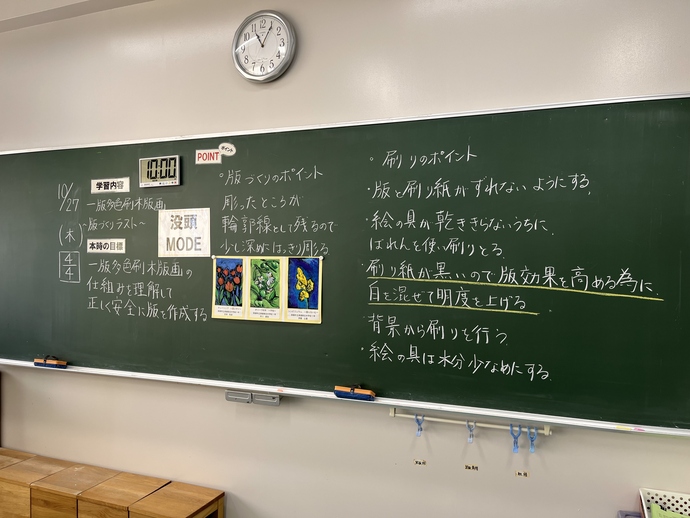 10/27
(木)
4/4
学習内容
一版多色刷木版画
〜版づくりラスト〜
本時の目標
一版多色刷木版画の
仕組みを理解して
正しく安全に版を作成する
10:00
没頭
MODE
POINT
ポイント
・版づくりのポイント
彫ったところが
輪郭線として残るので
少し深めにはっきり彫る
・刷りのポイント
・版と刷り紙がずれないようにする。
・絵の具が乾ききらないうちに、
ばれんを使い刷りとる。
・刷り紙が黒いので版効果を高める為に、
白を混ぜて明度を上げる。
・背景から刷りを行う。
・絵の具は水分少なめにする。